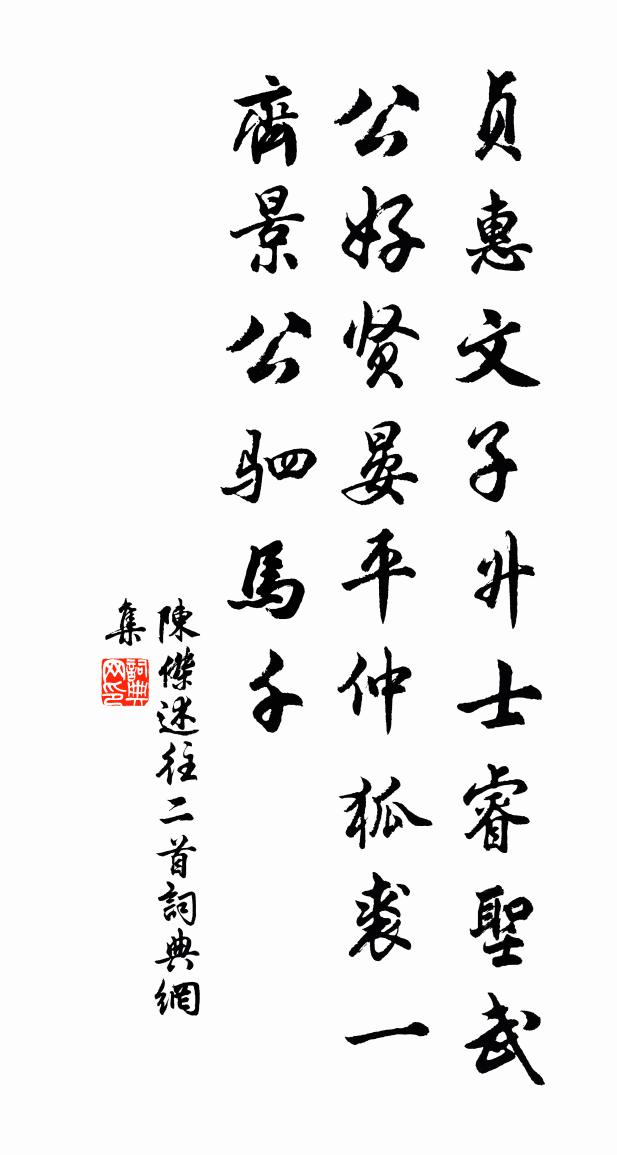 贞惠文子升士睿聖武
公好贤晏平仲狐裘一
齊景公驷馬千
陳傑述往二首詞典網
集
詞典
网印